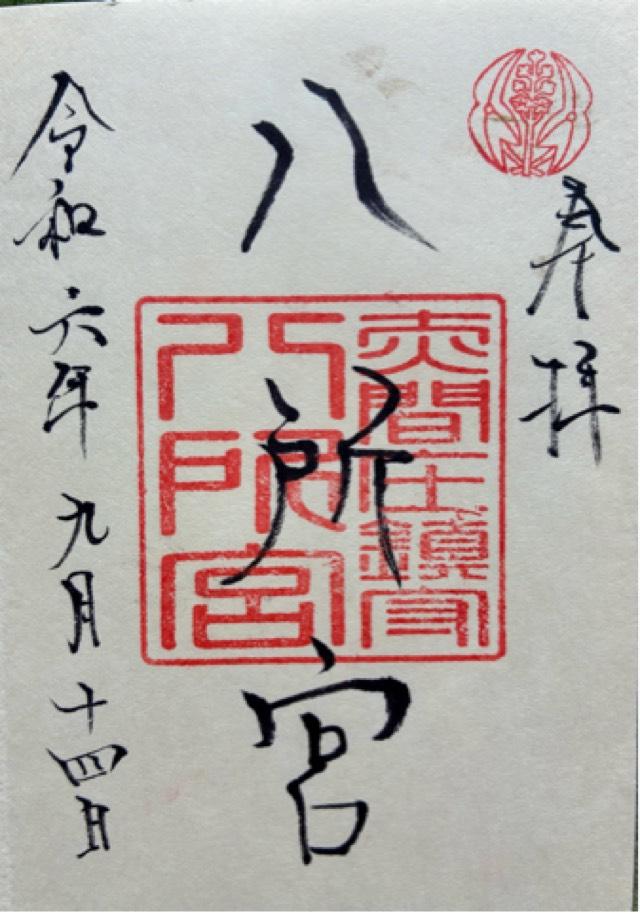 奉拝
八所宮
赤間庄鎮守
八所宮
令和六年九月十四日